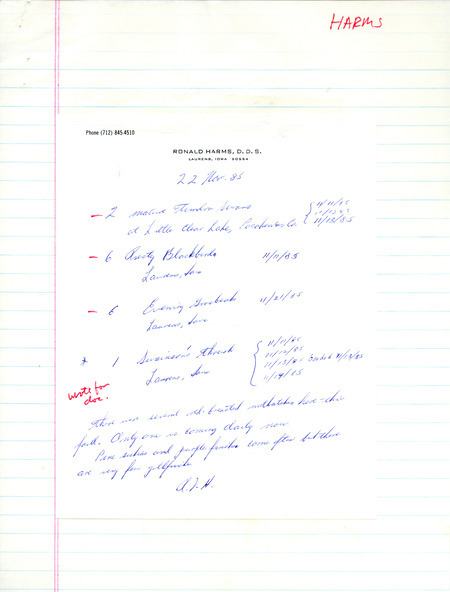 HARMS
Phone (712) 845-4510
RONALD HARMS, D.D.S.
LAURENS, IOWA 50554
22 Nov. 85
- 2 mature Trumpeter Swans
at Little Clear Lake, Pocahontas Co. 11/11/85
11/12/85
11/13/85
- 6 Rusty Blackbirds 11/11/85
Laurens, Iowa
- 6 Evening Grosbeak 11/21/85
Laurens, Iowa
* 1 Swainson's Thrush 11/11/85
Laurens, Iowa 11/12/85
11/13/85 11/13/85
11/14/85
wrote for
doc.
There were several red-breasted nuthatches here this
fall. Only one is coming daily now
Pine siskins and purple finches come often but there
are very few goldfinches